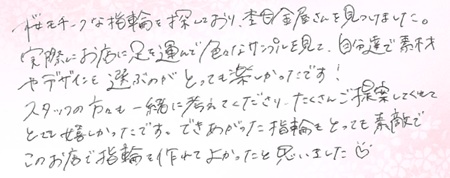 桜モチーフな指輪を探しており、杢目金屋さんを見つけました。
実際にお店に足を運んで色々なサンプルを見て、自分達で素材
やデザインを選ぶのがとっても楽しかったです！
スタッフの方々も一緒に考えてくださり、たくさんご提案してくれて
とても嬉しかったです。できあがった指輪もとっても素敵で
このお店で指輪を作れてよかったと思いました♡